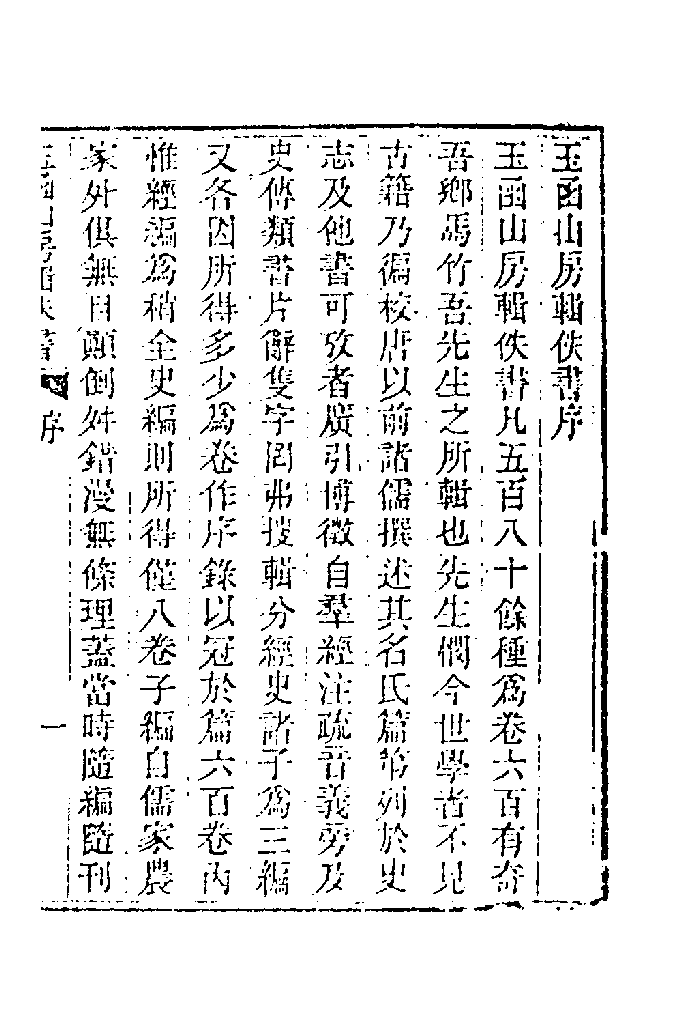 玉函山房輯佚書序
玉函山房輯佚書凡五百八十餘種爲卷六百有奇
吾鄉馬竹吾先生之所輯也先生憫今世學者不見
古籍乃徧校唐以前諸儒撰述其名氏篇第列於史
志及他書可攷者廣引博徵自羣經注疏音義旁及
史傳類書片辭隻字罔弗搜輯分經史諸子爲三編
又各因所得多少爲卷作序錄以冠於篇六百卷內
惟經編爲稍全史編則所得僅八卷子編自儒家農
家外俱無目顛倒舛錯漫無條理蓋當時隨編隨刊
玉函山房輯佚書
序
一